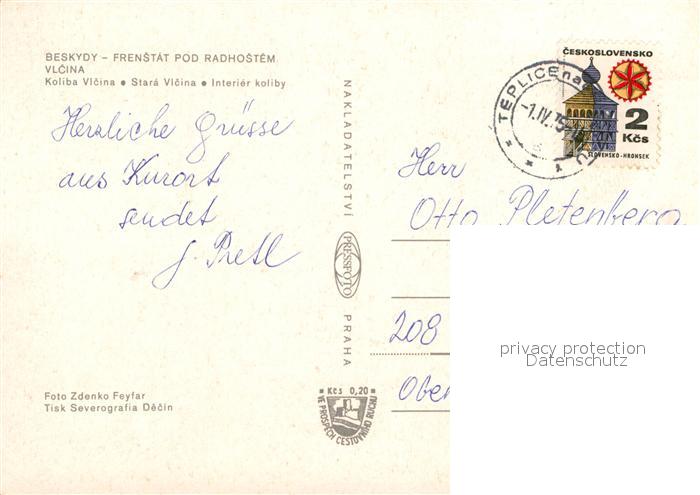 BESKYDY – FRENŠTÁT POD RADHOŠTĚM
VLČINA
Koliba Vlčina ● Stará Vlčina ● Interiér koliby
Herzliche Grüsse
aus Kurort
sendet
J. Pretl
Foto Zdenko Feyfar
Tisk Severografia Děčín
NAKLADATELSTVÍ
PRESSFOTO
PRAHA
Kčs 0,20
VE PROSPĚCH CESTOVNÍHO RUCHU
ČESKOSLOVENSKO
2
Kčs
SLOVENSKO-HRONSEK
TEPLICE na
-1.IV.75
Herr
Otto Pletenberg
208
Ober
privacy protection
Datenschutz